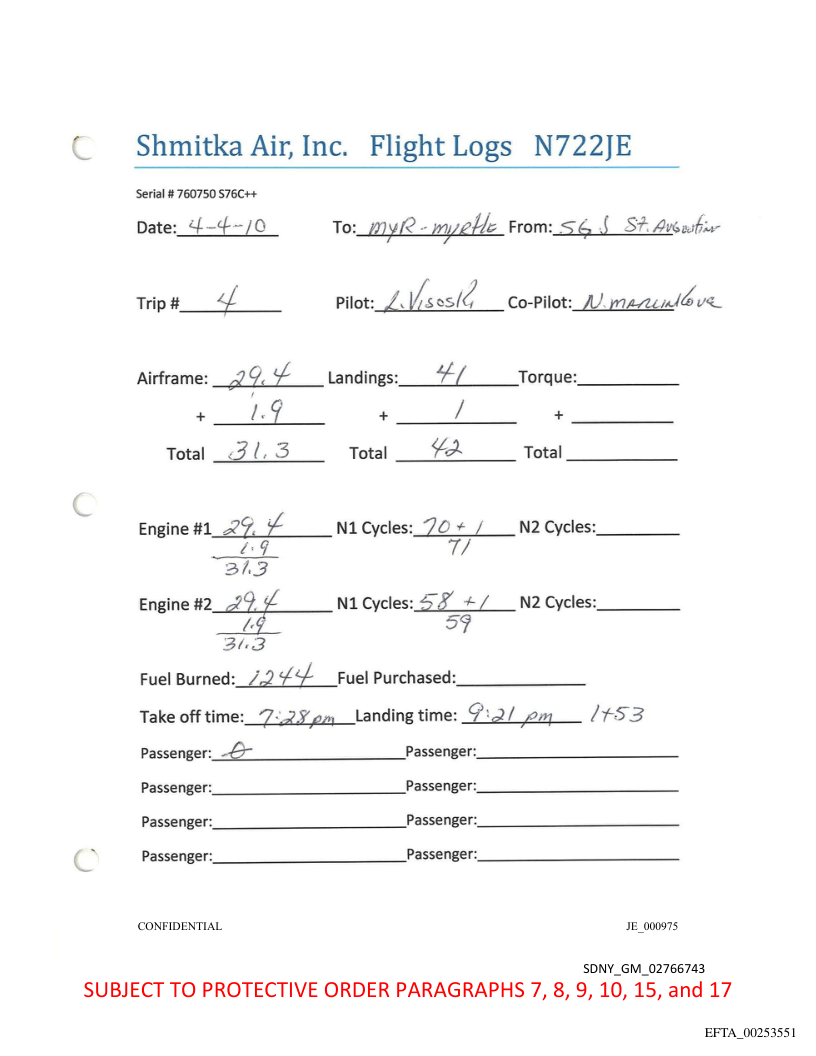 Shmitka Air, Inc. Flight Logs N722JE
Serial # 760750 S76C++
Date: 4-4-10 To: MYR-MYRtle From: SGJ St. Augustine
Trip # 4 Pilot: L. Visoski Co-Pilot:
Airframe: 29.4 Landings: 41 Torque:
+ 1.9 + 1 +
Total 31.3 Total 42 Total
Engine #1 29.4 N1 Cycles: 70 + 1 N2 Cycles:
1.9 71
31.3
Engine #2 29.4 N1 Cycles: 58 + 1 N2 Cycles:
1.9 59
31.3
Fuel Burned: 1244 Fuel Purchased:
Take off time: 7:28 pm Landing time: 9:21 pm 1+53
Passenger: 0 Passenger:
Passenger: Passenger:
Passenger: Passenger:
Passenger: Passenger:
CONFIDENTIAL JE_000975
SDNY_GM_02766743
SUBJECT TO PROTECTIVE ORDER PARAGRAPHS 7, 8, 9, 10, 15, and 17
EFTA_00253551